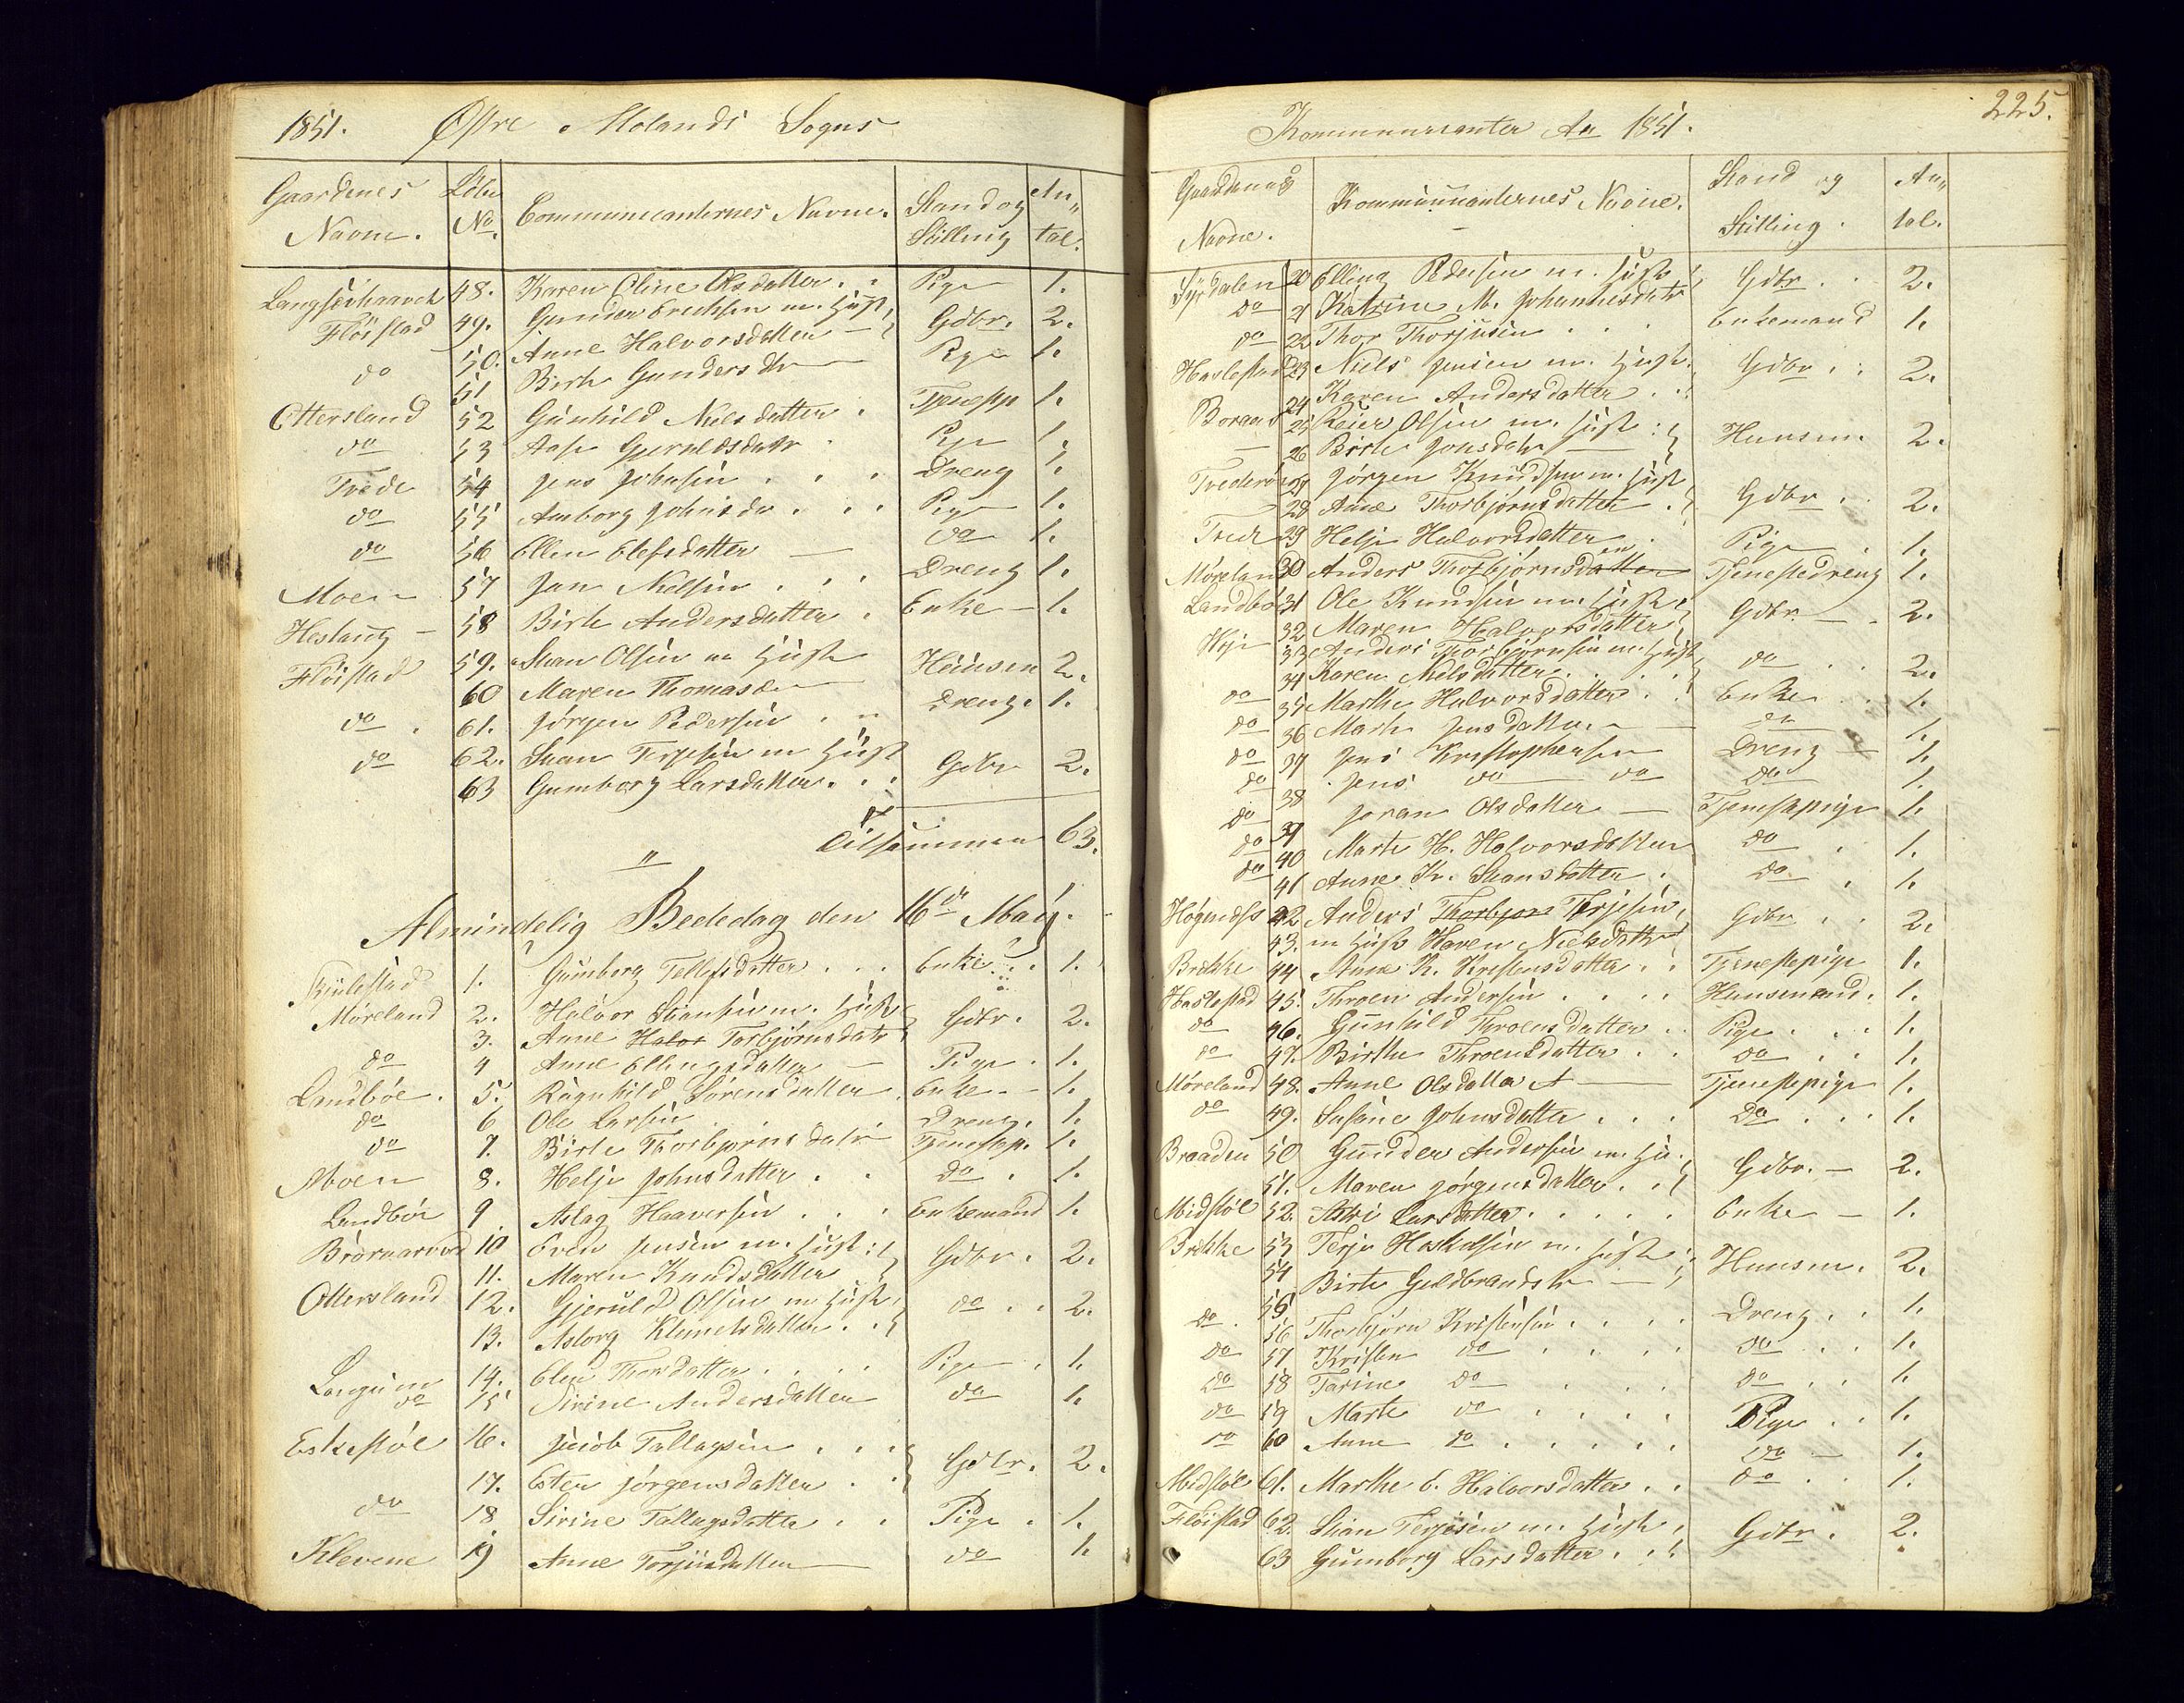 1851. Østre Molands Sogns
Gaardenes Navne. Løbe No. Communicanternes Navne. Stand og Stilling An„ tal.
48. Karen Oline Olsdatter . . Pige 1.
Fløistad 49. Gunder Erichsen m. Hust Gdbr. 2.
50. Anne Halvorsdatter
do 51 Birte Gundersdtr Pige 1.
Ottersland 52 Gunhild Nielsdatter . Tjenepp 1.
do 53 Aase Gjeruldsdatr . Pige 1.
Trede 54 Jens Johnsen . . . Dreng 1.
do 55 Amborg Johnsdr . . . Pige 1.
do 56 Ellen Elefsdatter — do 1.
Moen 57 Jan Nielsen . . . Dreng 1.
58 Birte Andersdatter . Enke — 1.
Fløistad 59. Stian Olsen m Hustr Huusm 2.
60 Maren Thomasd
do . 61. Jørgen Pedersen . „ Dreng. 1.
do 62. Stian Terjesen m Hust Gdbr 2.
63 Gumborg Larsdatter . . .
Tilsammen 63.
„
Almindelig Bededag den 16de Maij.
1. Gumborg Tellefsdatter . . . Enke . . 1.
Møreland 2. Halvor Stiansen m. Hustr Gdbr. 2.
3. Anne Halvo Torbjørnsdatr
do 4 Anne Ellingsdatter — Pige . 1.
Landbøe . 5. Ragnhild Sørensdatter . Enke — 1.
do 6 Ole Larsen Dreng. 1.
do 7. Birte Thorbjørnsdatr Tjenestp. 1.
Moen 8. Helje Johnsdatter . . do . 1.
Landbøe 9 Aslag Haaversen . . . Enkemand 1.
10 Even Jensen m. Hust: Gdbr . 2.
11. Maren Knudsdatter
Ottersland 12. Gjeruld Olsen m Hust. do . . 2.
13. Asborg Klemetsdatter . .
Langum 14. Elen Thorsdatter . . . . Pige . 1.
do 15 Sirine Andersdatter do 1.
Eskestøl 16. Jacob Tallagsen . . . Gdbr. 2.
17. Ester Jørgensdatter . .
do 18 Sirine Tallagsdatter . . Pige . 1.
Klevene 19 Anne Torjusdatter do 1.
225.
Kommunicanter Aar 1851.
Gaardenes Navne. Kommunicanternes Navne. Stand og Stilling . An„ tal.
Syrdalen 20 Elling Pedersen m. Hustr Gdbr . . 2.
do 21 Katrine M. Johannesdatr
do 22 Thor Thorjusen . . . Enkemand 1.
Haslestad 23 Niels Jensen m. Hust. Gdbr . . 2.
24 Karen Andersdatter . .
25 Reier Olsen m. Hust : Huusm. 2.
— 26 Birte Jonsdatr —
27 Jørgen Knudsen m. Hust Gdbr . . 2.
28 Anne Thorbjørnsdatter .
Trede 29 Helje Halvorsdatter . Pige . 1.
Møreland 30 Anders Thorbjørnsdatter en Tjenestedreng 1.
Landbø 31 Ole Knudsen m. Hustr Gdbr — . 2.
32 Maren Halvorsdatter
33 Anders Thorbjørnsen m. Hust do . . 2.
34 Karen Nielsdatter . . . .
do 35 Marthe Halvorsdatter . . Enke . . 1.
do 36 Marte Jensdatter . — do 1.
do 37 Jens Kristophersen Dreng — 1.
do 38 Jens do do do 1.
do 39 Joran Olsdatter — Tjenestepige 1.
do 40 Marte H. Halvorsdatter do . 1.
do 41 Anne K. Stiansdatter . do . 1.
42 Anders Thorbjørn Terjesen, Gdbr . . 2.
43. m Hustr Karen Nielsdatter
Brekke 44 Anne K. Kristensdatter . . Tjenestepige 1.
Haslestad 45. Throen Andersen . . . . Huusmand. 1.
do 46. Gunhild Throensdatter . . Pige . . . 1.
do 47. Birthe Throensdatter . . do . . 1.
Møreland 48. Anne Olsdatter A — Tjenestepige 1.
do 49. Susane Johnsdatter . . . do . . . 1.
Braaden 50 Gunder Andersen m. Hu. Gdbr. — 2.
51. Maren Jørgensdatter . .
Midstøl 52. Larsdatter . . . . . Enke — 1.
Brekke 53 Terje m. Hustr Huusm. 2.
54 Birte Guldbrandsdtr —
55
do . 56 Thorbjørn Kristensen . . . . Dreng . . 1.
do 57 Kristen do . . . . do . . 1.
do 58 Tarine do . . . do . . 1.
do 59 Marte do . . . . Pige . . 1.
do 60 Anne do . . . . . do — 1.
Midstøl 61. Marthe E. Halvorsdatter . . do . . 1.
Fløistad 62. Stian Terjesen m. Hustr . Gdbr . 2.
63 Gumborg Larsdatter . . .